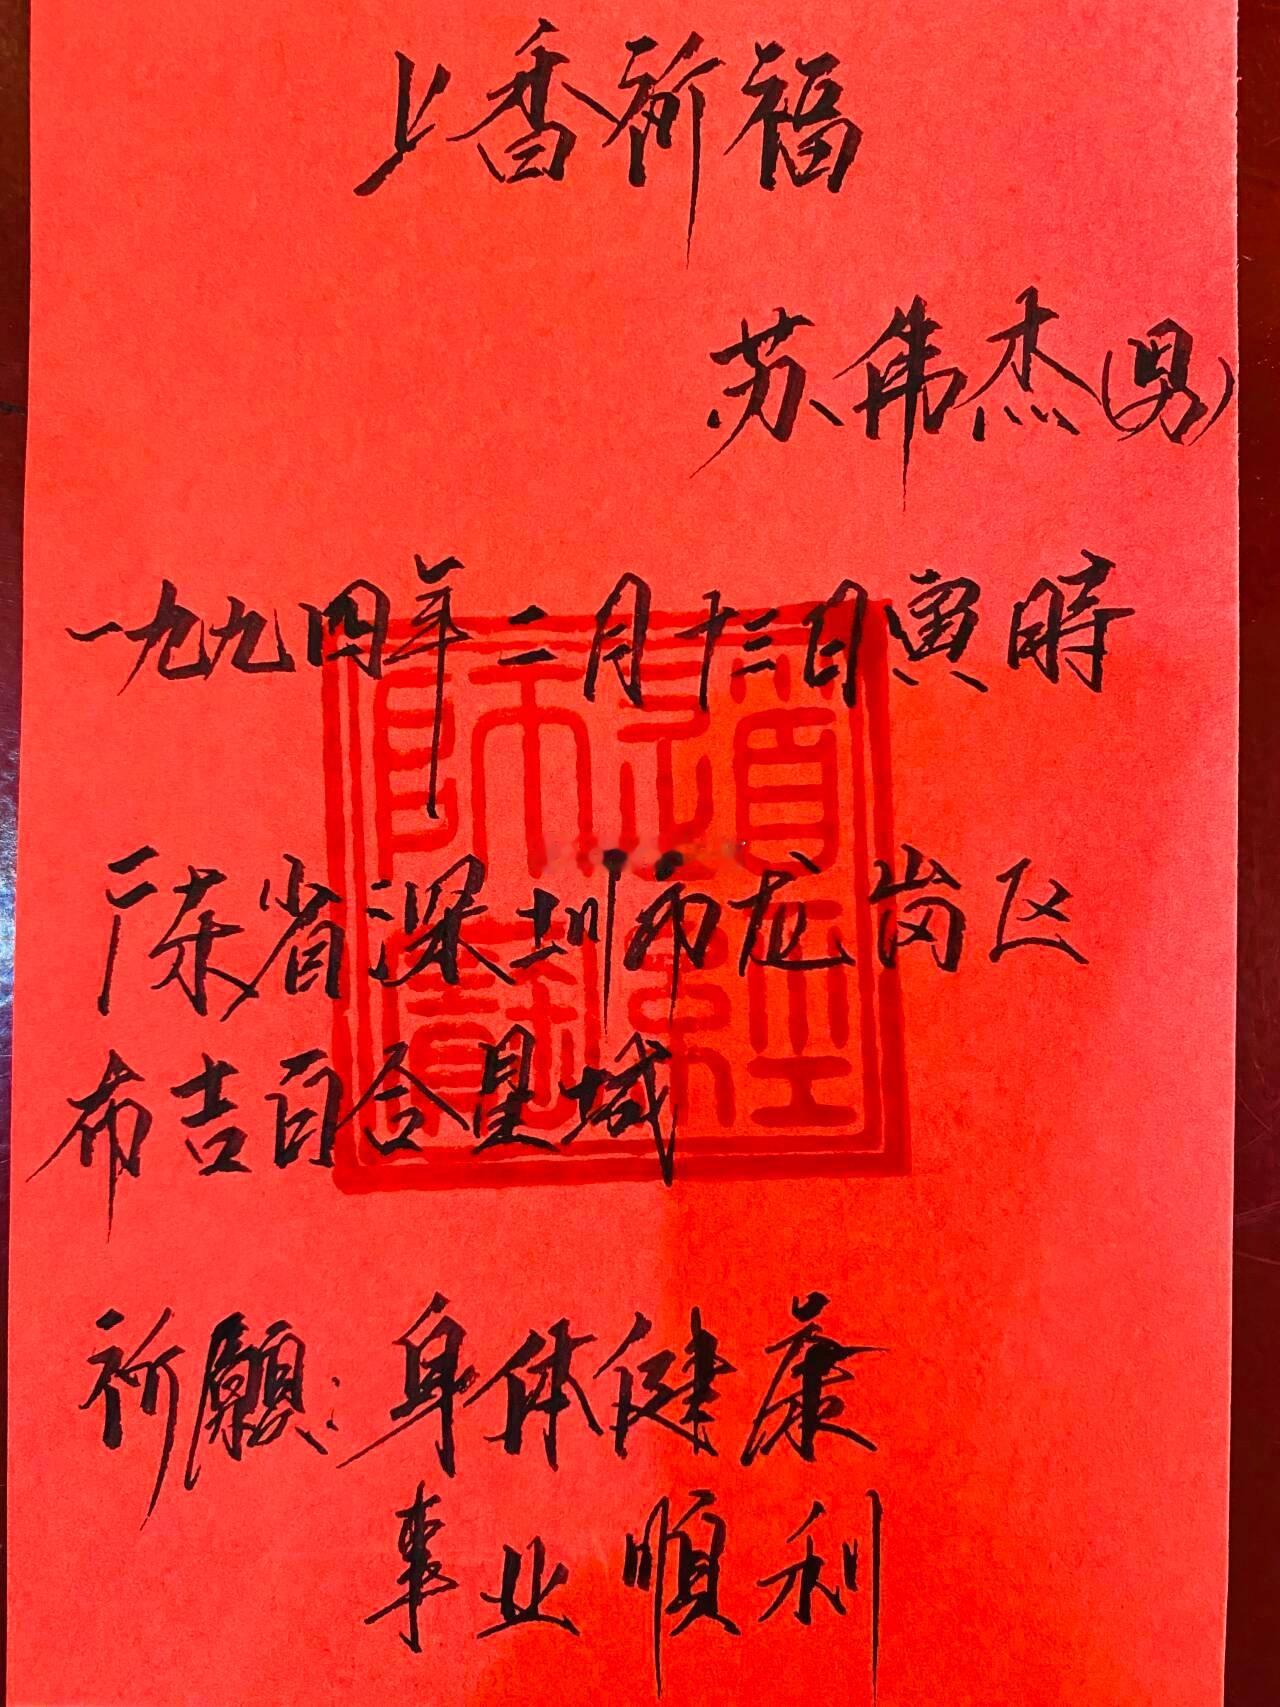 上香祈福
苏伟杰(男)
一九九四年二月十三日寅時
广东省深圳市龙岗区
布吉百合星城
祈願:身体健康
事业順利
道經師寶